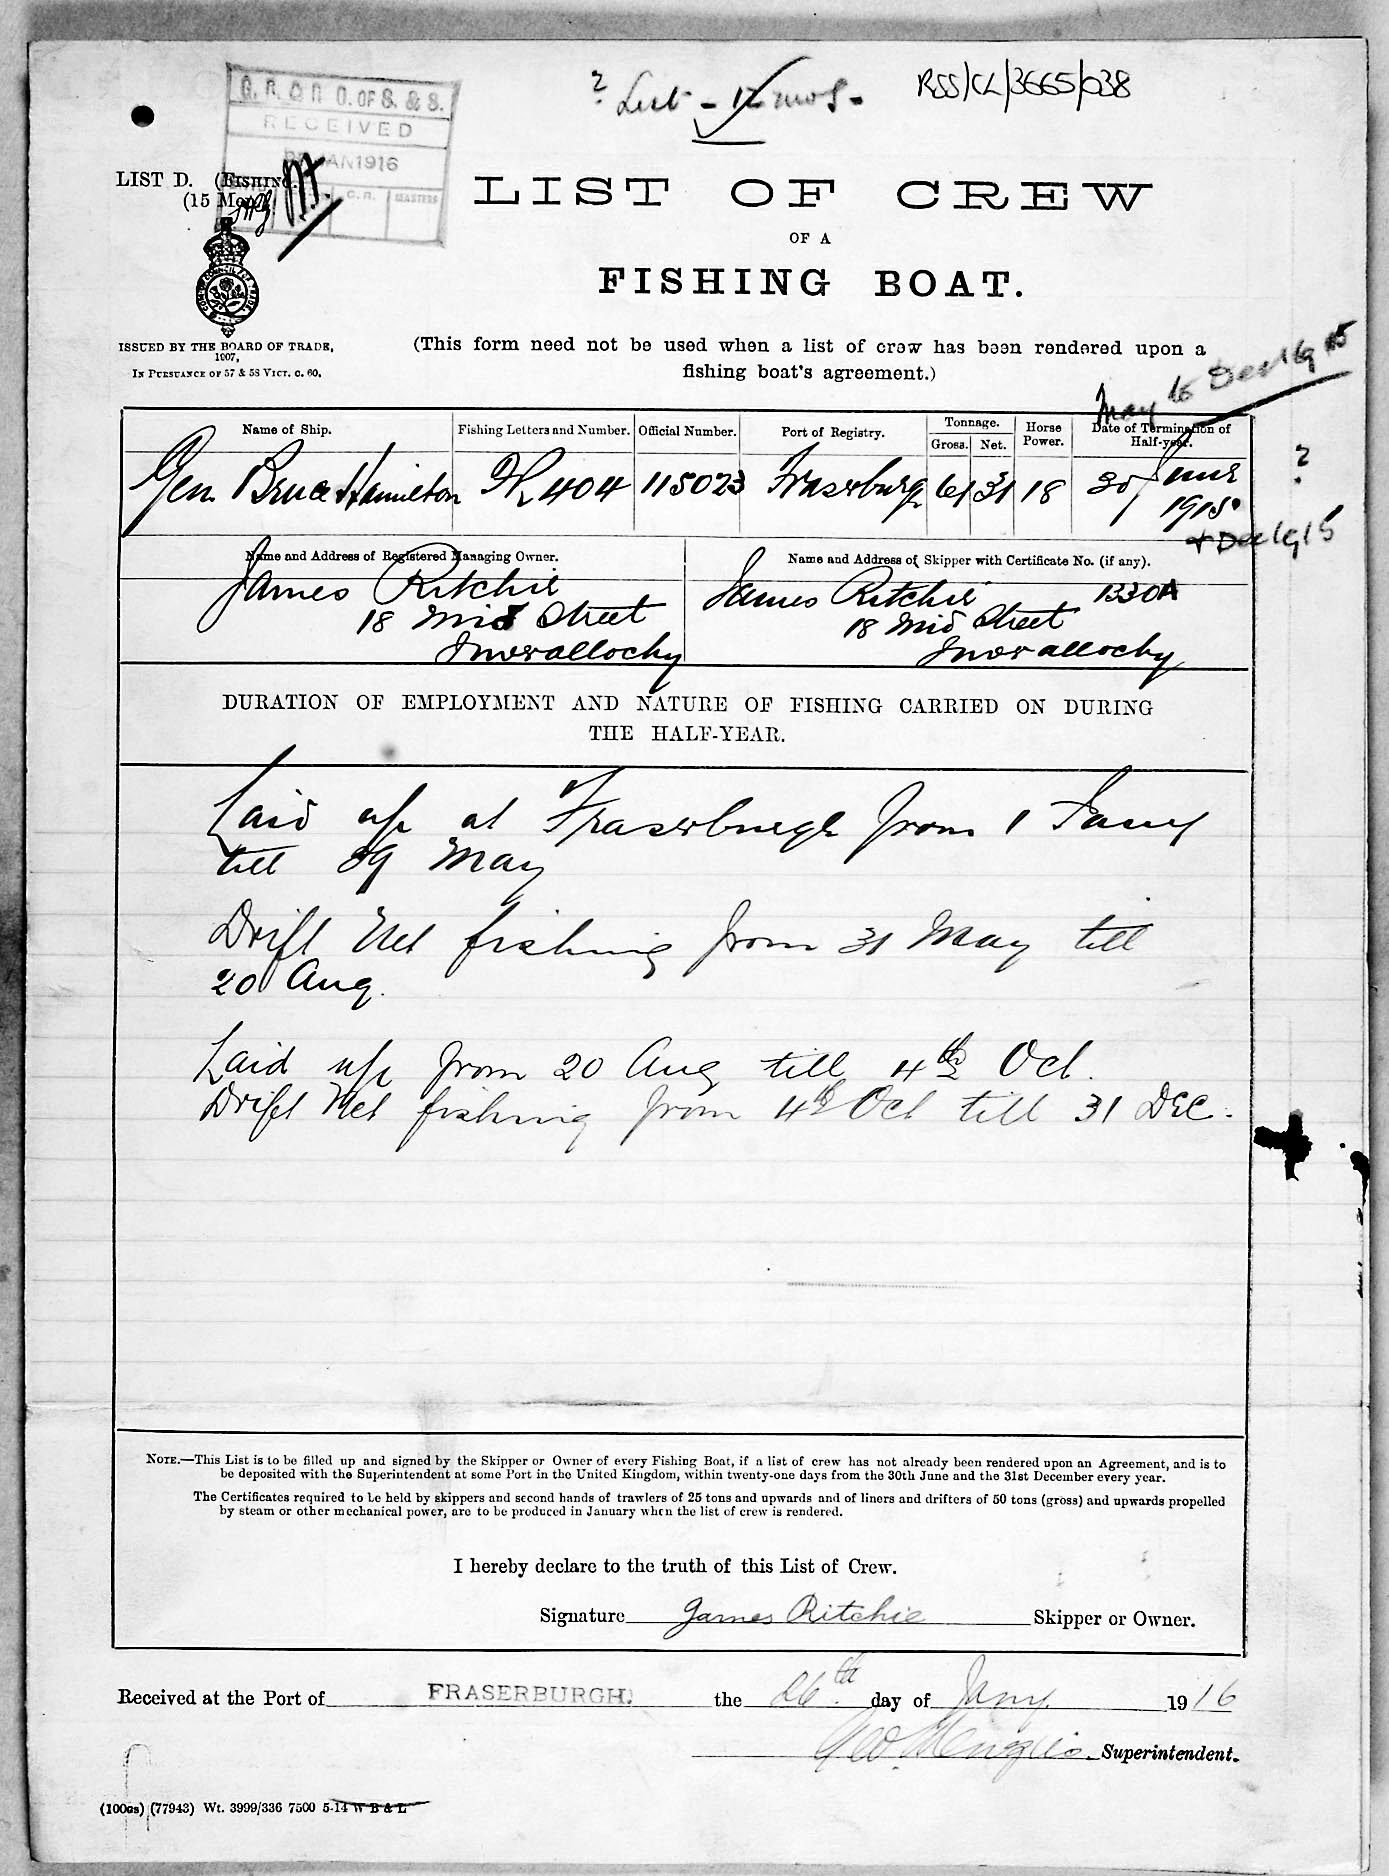 ? List - 12 mos -
RSS/CL/3665/038
G. R. O. OF S. & S.
RECEIVED
JAN 1916
C.R. MASTERS
LIST D. (FISHING.
(15
LIST OF CREW
OF A
FISHING BOAT.
ISSUED BY THE BOARD OF TRADE,
1907,
IN PURSUANCE OF 57 & 58 VICT. C. 60.
(This form need not be used when a list of crew has been rendered upon a
fishing boat's agreement.)
May to Dec 1915
Name of Ship. Fishing Letters and Number. Official Number. Port of Registry. Tonnage. Gross. Net. Horse Power. Date of Termination of Half-year.
Gen Bruce Hamilton FR 404 115023 Fraserburgh 61 31 18 30 June
1915.
?
+ Dec 1915
Name and Address of Registered Managing Owner. Name and Address of Skipper with Certificate No. (if any).
James Ritchie James Ritchie 1330A
18 Mid Street 18 Mid Street
Inverallochy Inverallochy
DURATION OF EMPLOYMENT AND NATURE OF FISHING CARRIED ON DURING
THE HALF-YEAR.
Laid up at Fraserburgh from 1 Jany
till 29 May
Drift Net fishing from 31 May till
20 Aug.
Laid up from 20 Aug till 4th Oct.
Drift Net fishing from 4th Oct till 31 DEC.
NOTE.—This List is to be filled up and signed by the Skipper or Owner of every Fishing Boat, if a list of crew has not already been rendered upon an Agreement, and is to
be deposited with the Superintendent at some Port in the United Kingdom, within twenty-one days from the 30th June and the 31st December every year.
The Certificates required to be held by skippers and second hands of trawlers of 25 tons and upwards and of liners and drifters of 50 tons (gross) and upwards propelled
by steam or other mechanical power, are to be produced in January when the list of crew is rendered.
I hereby declare to the truth of this List of Crew.
Signature James Ritchie Skipper or Owner.
Received at the Port of FRASERBURGH. the 26th day of Jany. 1916
Geo. Menzies. Superintendent.
(100gs) (77943) Wt. 3999/336 7500 5-14 W B & L